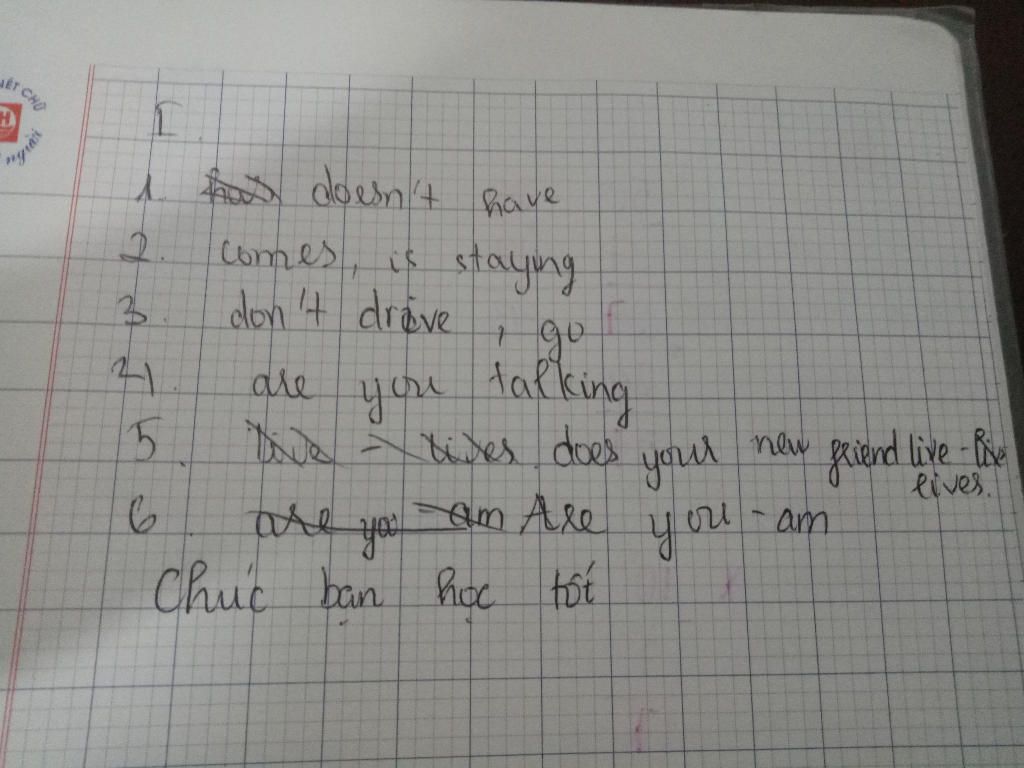 I.
1. doesn't have
2. comes, is staying
3. don't drive, go
4. are you talking
5. live - lives. does your new friend live - live
lives.
6. are you - am Are you - am
Chúc bạn học tốt
H